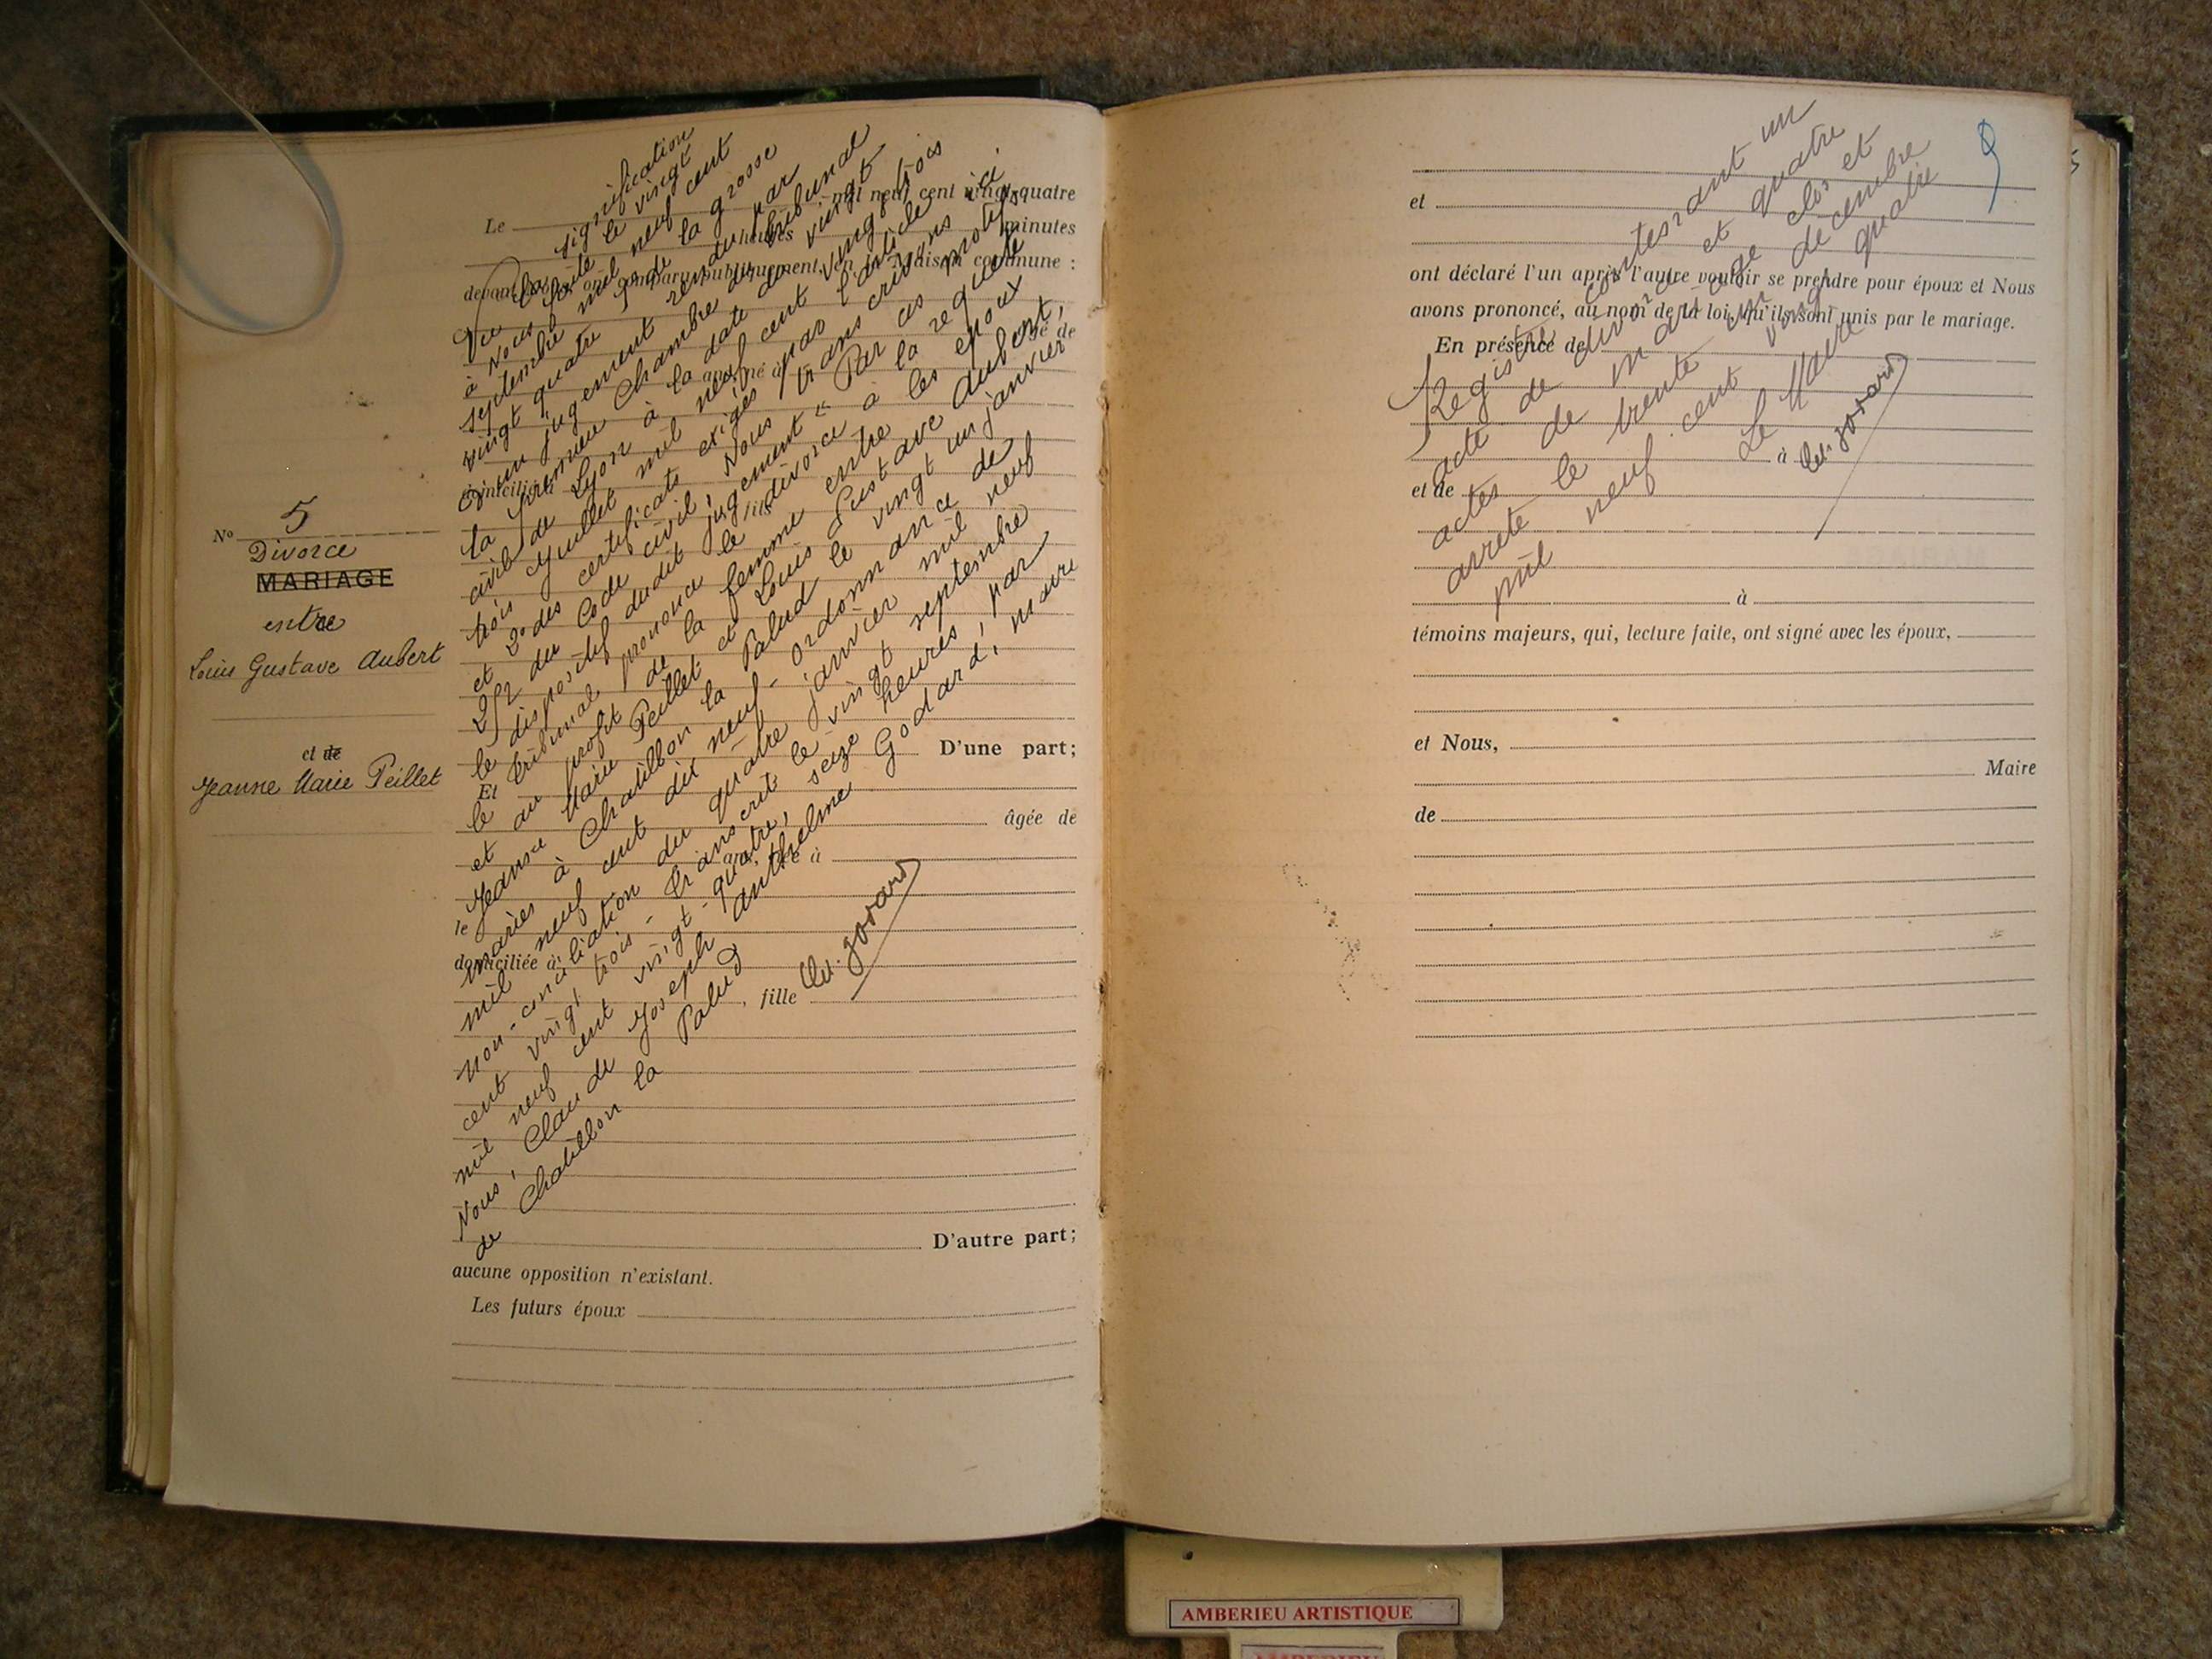 N° 5
Divorce
MARIAGE
entre
Louis Gustave Aubert
et de
Jeanne Marie Peillet
Le mil neuf cent vingt-quatre
heures minutes
devant Nous ont comparu publiquement en la maison commune :
âgé de
ans, né à
domicilié à
fils
D'une part;
Et
âgée de
ans, née à
le
domiciliée à
, fille
D'autre part;
aucune opposition n'existant.
Les futurs époux
Vu la signification
à Nous faite le vingt
septembre mil neuf cent
vingt quatre de la grosse
d'un jugement rendu par
la Première Chambre du tribunal
civil de Lyon à la date du vingt
trois Juillet mil neuf cent vingt trois
et 2° des certificats exigés par l'article
252 du Code civil, Nous transcrivons ici
le dispositif dudit jugement " Par ces motifs,
le tribunal prononce le divorce à la requête
et au profit de la femme entre les époux
Jeanne Marie Peillet et Louis Gustave Aubert,
mariés à Chatillon la Palud le vingt un janvier
mil neuf cent dix neuf - ordonnance de
non-conciliation du quatre janvier mil neuf
cent vingt trois - transcrit le vingt septembre
mil neuf cent vingt-quatre, seize heures, par
Nous, Claude Joseph Anthelme Godard, maire
de Chatillon la Palud
9
et
ont déclaré l'un après l'autre vouloir se prendre pour époux et Nous
avons prononcé, au nom de la loi, qu'ils sont unis par le mariage.
En présence de
à
et de
à
témoins majeurs, qui, lecture faite, ont signé avec les époux,
et Nous,
Maire
de
Registre contenant un
acte de divorce et quatre
actes de mariage clos et
arrêté le trente un décembre
mil neuf cent vingt quatre
Le Maire
AMBERIEU ARTISTIQUE
AMBERIEU